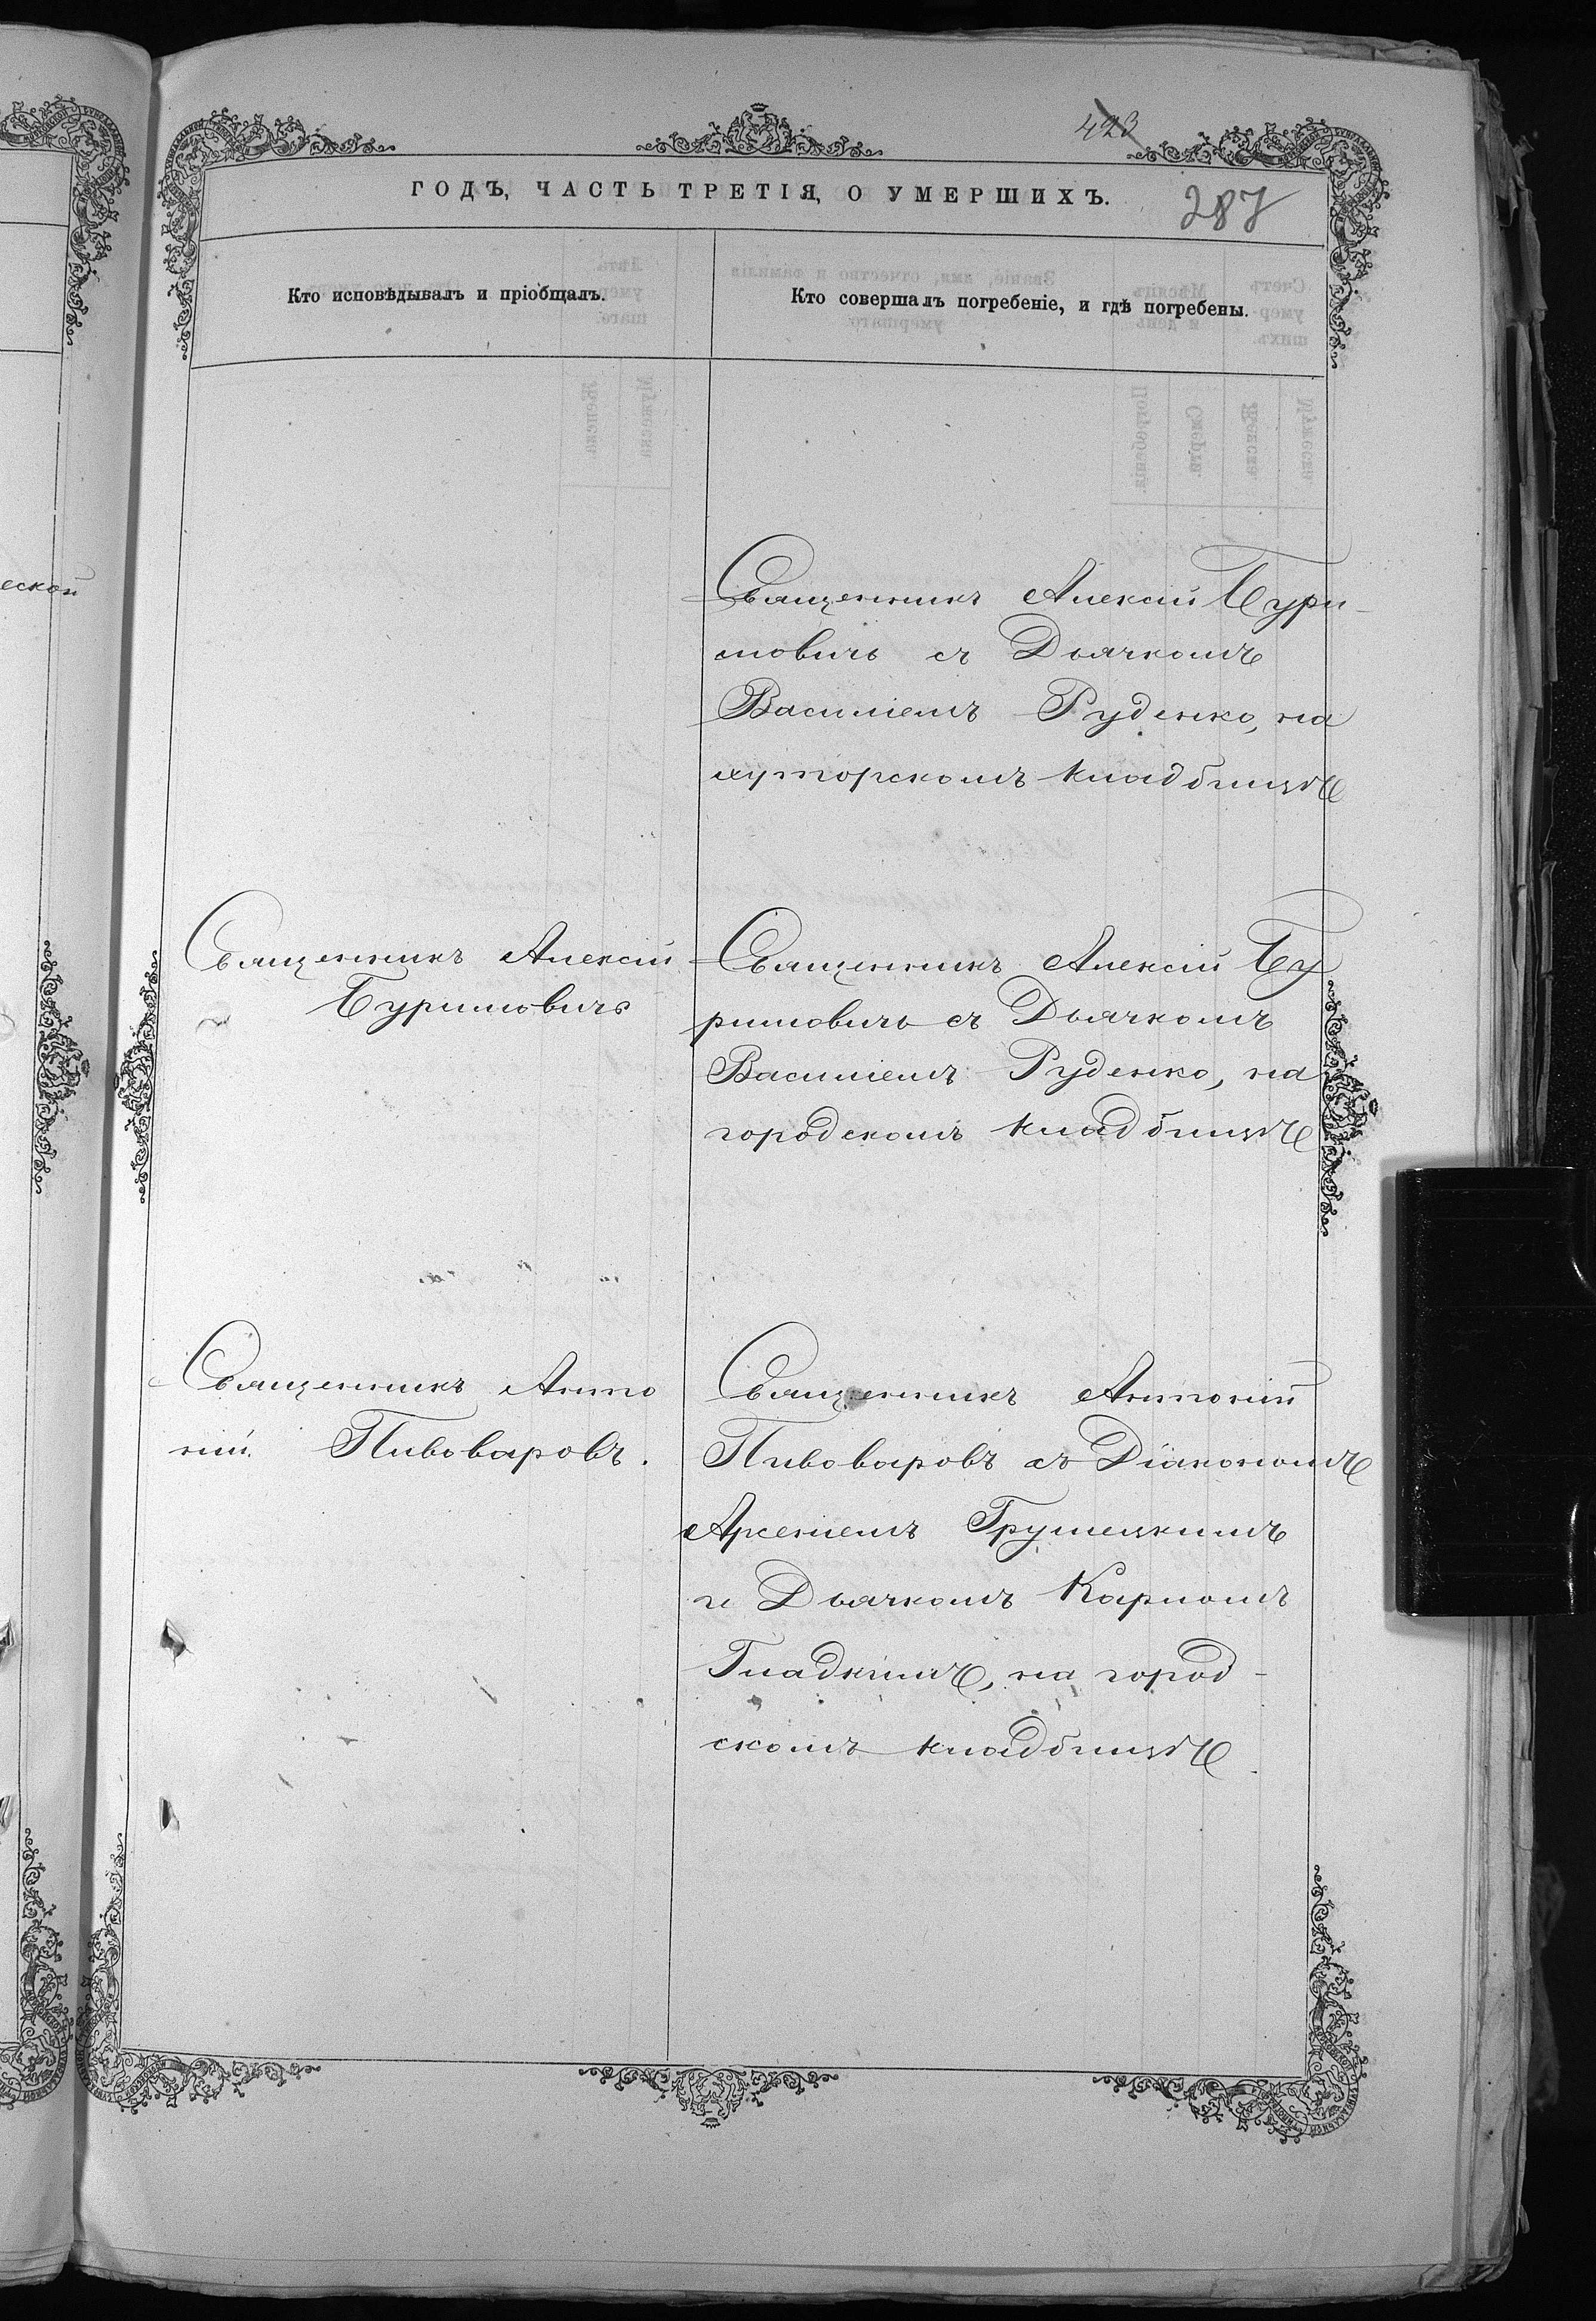 еской
423
ГОДЪ, ЧАСТЬ ТРЕТІЯ, О УМЕРШИХЪ.
287
Кто исповѣдывалъ и пріобщалъ.
Кто совершалъ погребеніе, и гдѣ погребены.
Священникъ Алексій Бури-
мовичъ съ Дьячкомъ
Василіемъ Руденко, на
хуторскомъ кладбищѣ
Священникъ Алексій
Буримовичъ
Священникъ Алексій Бу
римовичъ съ Дьячкомъ
Василіемъ Руденко, на
городскомъ кладбищѣ
Священникъ Анто
ній Пивоваровъ.
Священникъ Антоній
Пивоваровъ съ Діакономъ
Арсеніемъ Грушецкимъ
и Дьячкомъ Карпомъ
Гладкимъ, на город-
скомъ кладбищѣ